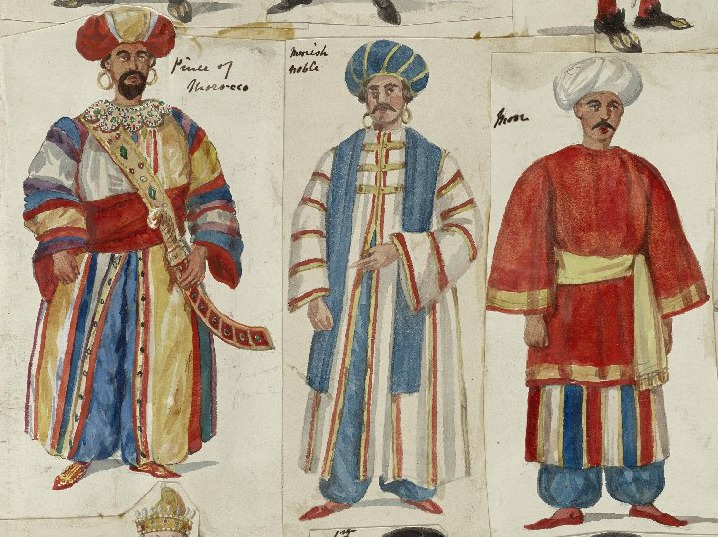 Prince of
Morocco
Moorish
noble
Moor